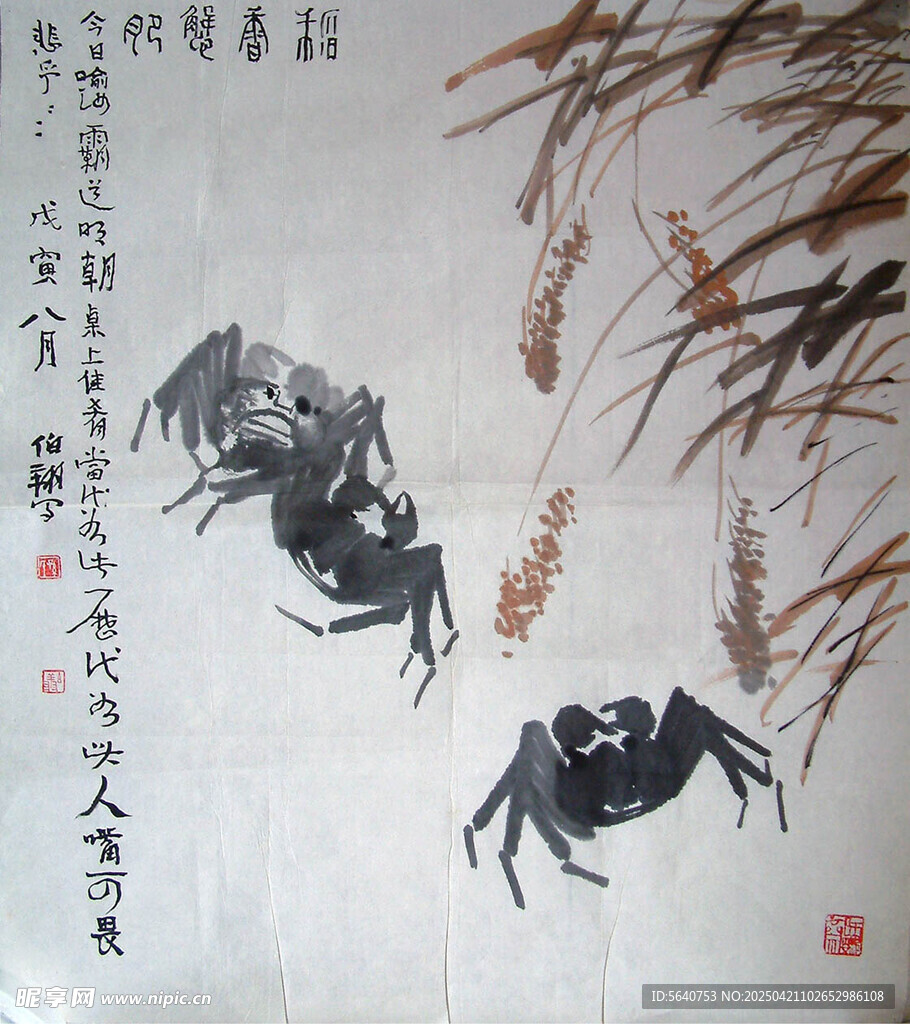 稻香蟹肥
今日喻海霸道明朝桌上佳肴當代為此歷代為此人嘴可畏
悲乎
戊寅八月
伯翔写
昵享网 www.nipic.cn
ID:5640753 NO:20250421102652986108